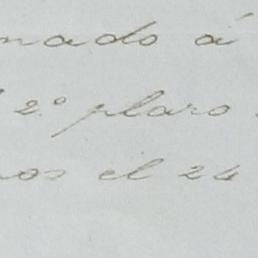 nado á
2º plaso
nos el 24